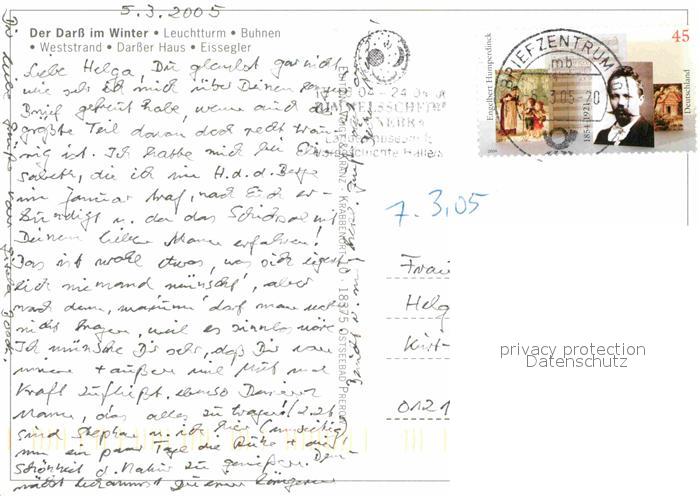 5.3.2005
Der Darß im Winter • Leuchtturm • Buhnen
• Weststrand • Darßer Haus • Eissegler
Liebe Helga, Du glaubst gar nicht
wie sehr ich mich über Deinen
Brief gefreut habe, wenn auch der
größte Teil davon doch recht trau-
rig ist. Ich hatte mich bei Elisabeth, die ich im H.d.d. Berge
im Januar traf, nach Euch er-
kundigt u. da das Schicksal mit
Deinem lieben Mann erfahren!
Das ist wohl etwas, was sich eigent-
lich niemand wünscht, aber
nach dem, warum darf man
nicht fragen, weil es sinnlos wäre
Ich wünsche Dir sehr, daß Dir von
innen + außen viel Mut und
Kraft zufließt, ebenso Deinem
Mann, das alles zu tragen!
sind Stephan u. ich hier
nun ein paar Tage die Ruhe + die
Schönheit d. Natur zu genießen.
nächst bekommst Du einen längeren
18375 OSTSEEBAD PREROW
BRIEFZENTRUM
mb
Engelbert Humperdinck
1854-1921
45
Deutschland
7.3.05
Frau
Helg
Kirt-
0121
privacy protection
Datenschutz